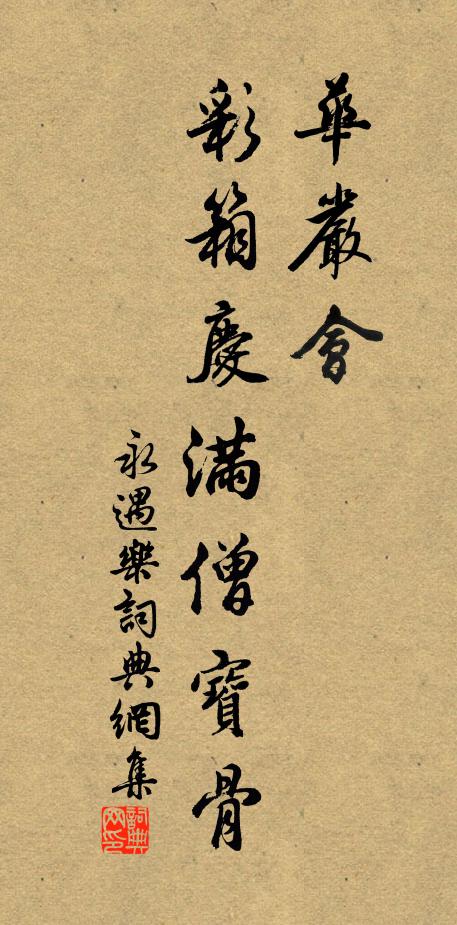 華嚴會
彩箱慶滿僧寶骨
永遇樂詞典網集
詞典
网印